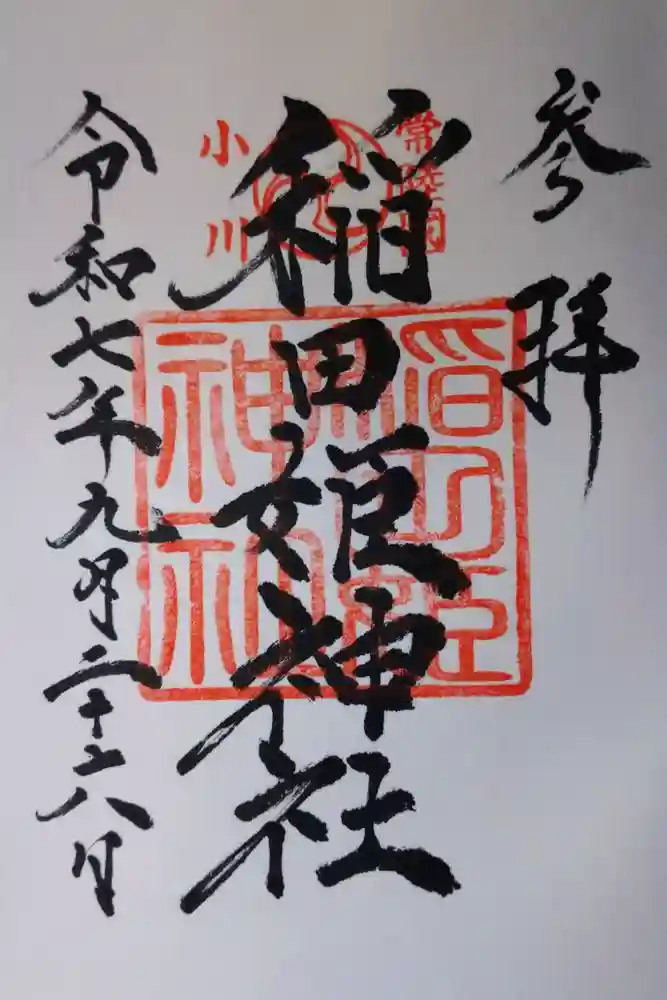 参拝
常陸國
稲田姫神社
小川
令和七年九月二十六日
神社